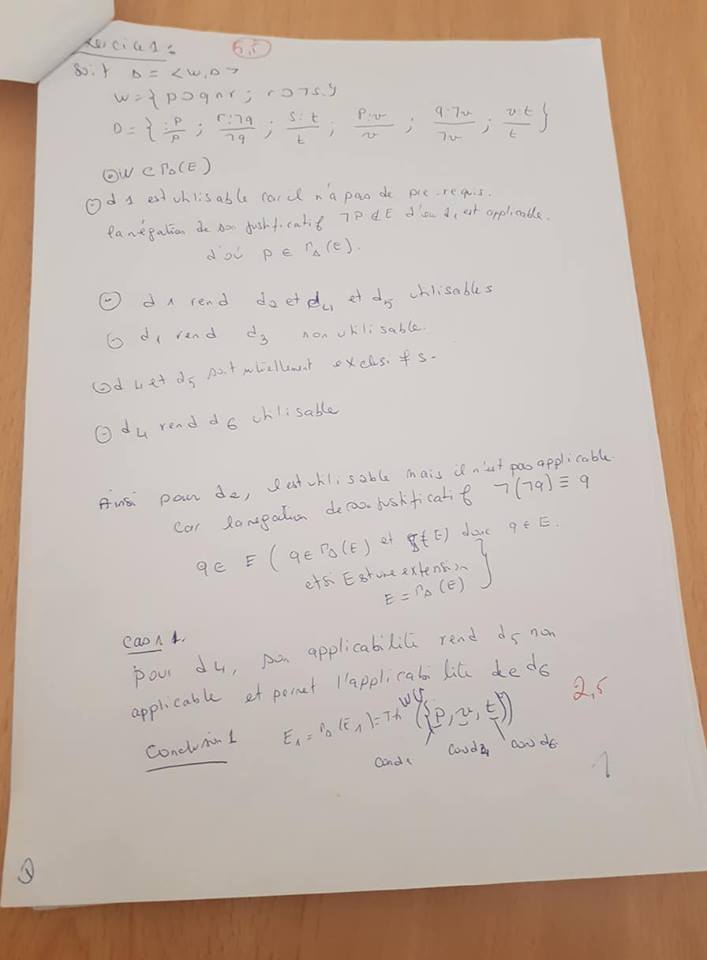 Exercice 1 :
5,5
Soit Δ = <W,D>
W = { p ⊃ q ∧ r ; r ⊃ ¬s }
D = { :p/p ; r:¬q/¬q ; s:t/t ; p:v/v ; q:¬v/¬v ; v:t/t }
⊙ W ⊂ ΓΔ(E)
⊖ d1 est utilisable car il n'a pas de pre-requis.
la négation de son justificatif ¬P ∉ E d'où d1 est applicable.
d'où p ∈ ΓΔ(E).
⊖ d1 rend d2 et d4 et d5 utilisables
⊖ d1 rend d3 non utilisable.
⊖ d4 et d5 sont mutuellement exclusifs.
⊖ d4 rend d6 utilisable
Ainsi pour d2, il est utilisable mais il n'est pas applicable
car la negation de son justificatif ¬(¬q) ≡ q
q ∈ E ( q ∈ ΓΔ(E) et donc q ∈ E.
et si E est une extension
E = ΓΔ(E) }
Cas 1.
pour d4, son applicabilité rend d5 non
applicable et permet l'applicabilité de d6
2,5
Conclusion 1 E1 = ΓΔ(E1) = Th(W∪{p, v, t})
cond1 cond4 cond6
1
1